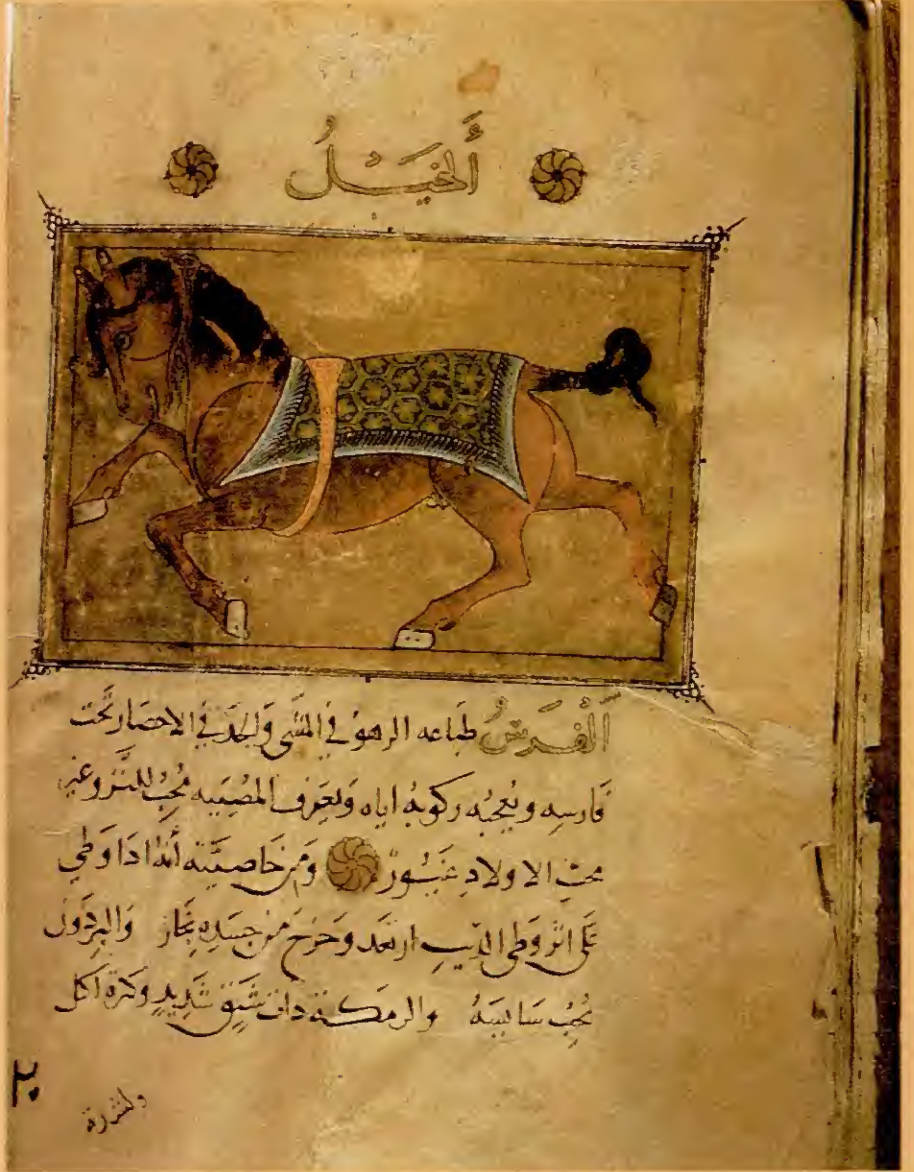 أَلخَيَـلُ
اَلْفَرَسُ طباعه الزهو في المشي والحدة في الاحضار تحت
فارسه ويُعجبُه ركوبه اياه ويعرف المصيبه محب للنزو غير
محب الاولاد غيور ومن خاصيته أنه اذا وطي
على اثر وطى الديب ارتعد وخرج من جسده بخار والبردون
يحب سايسه والرمكة ذات شبق شديد وكثرة اكل
ولشدة